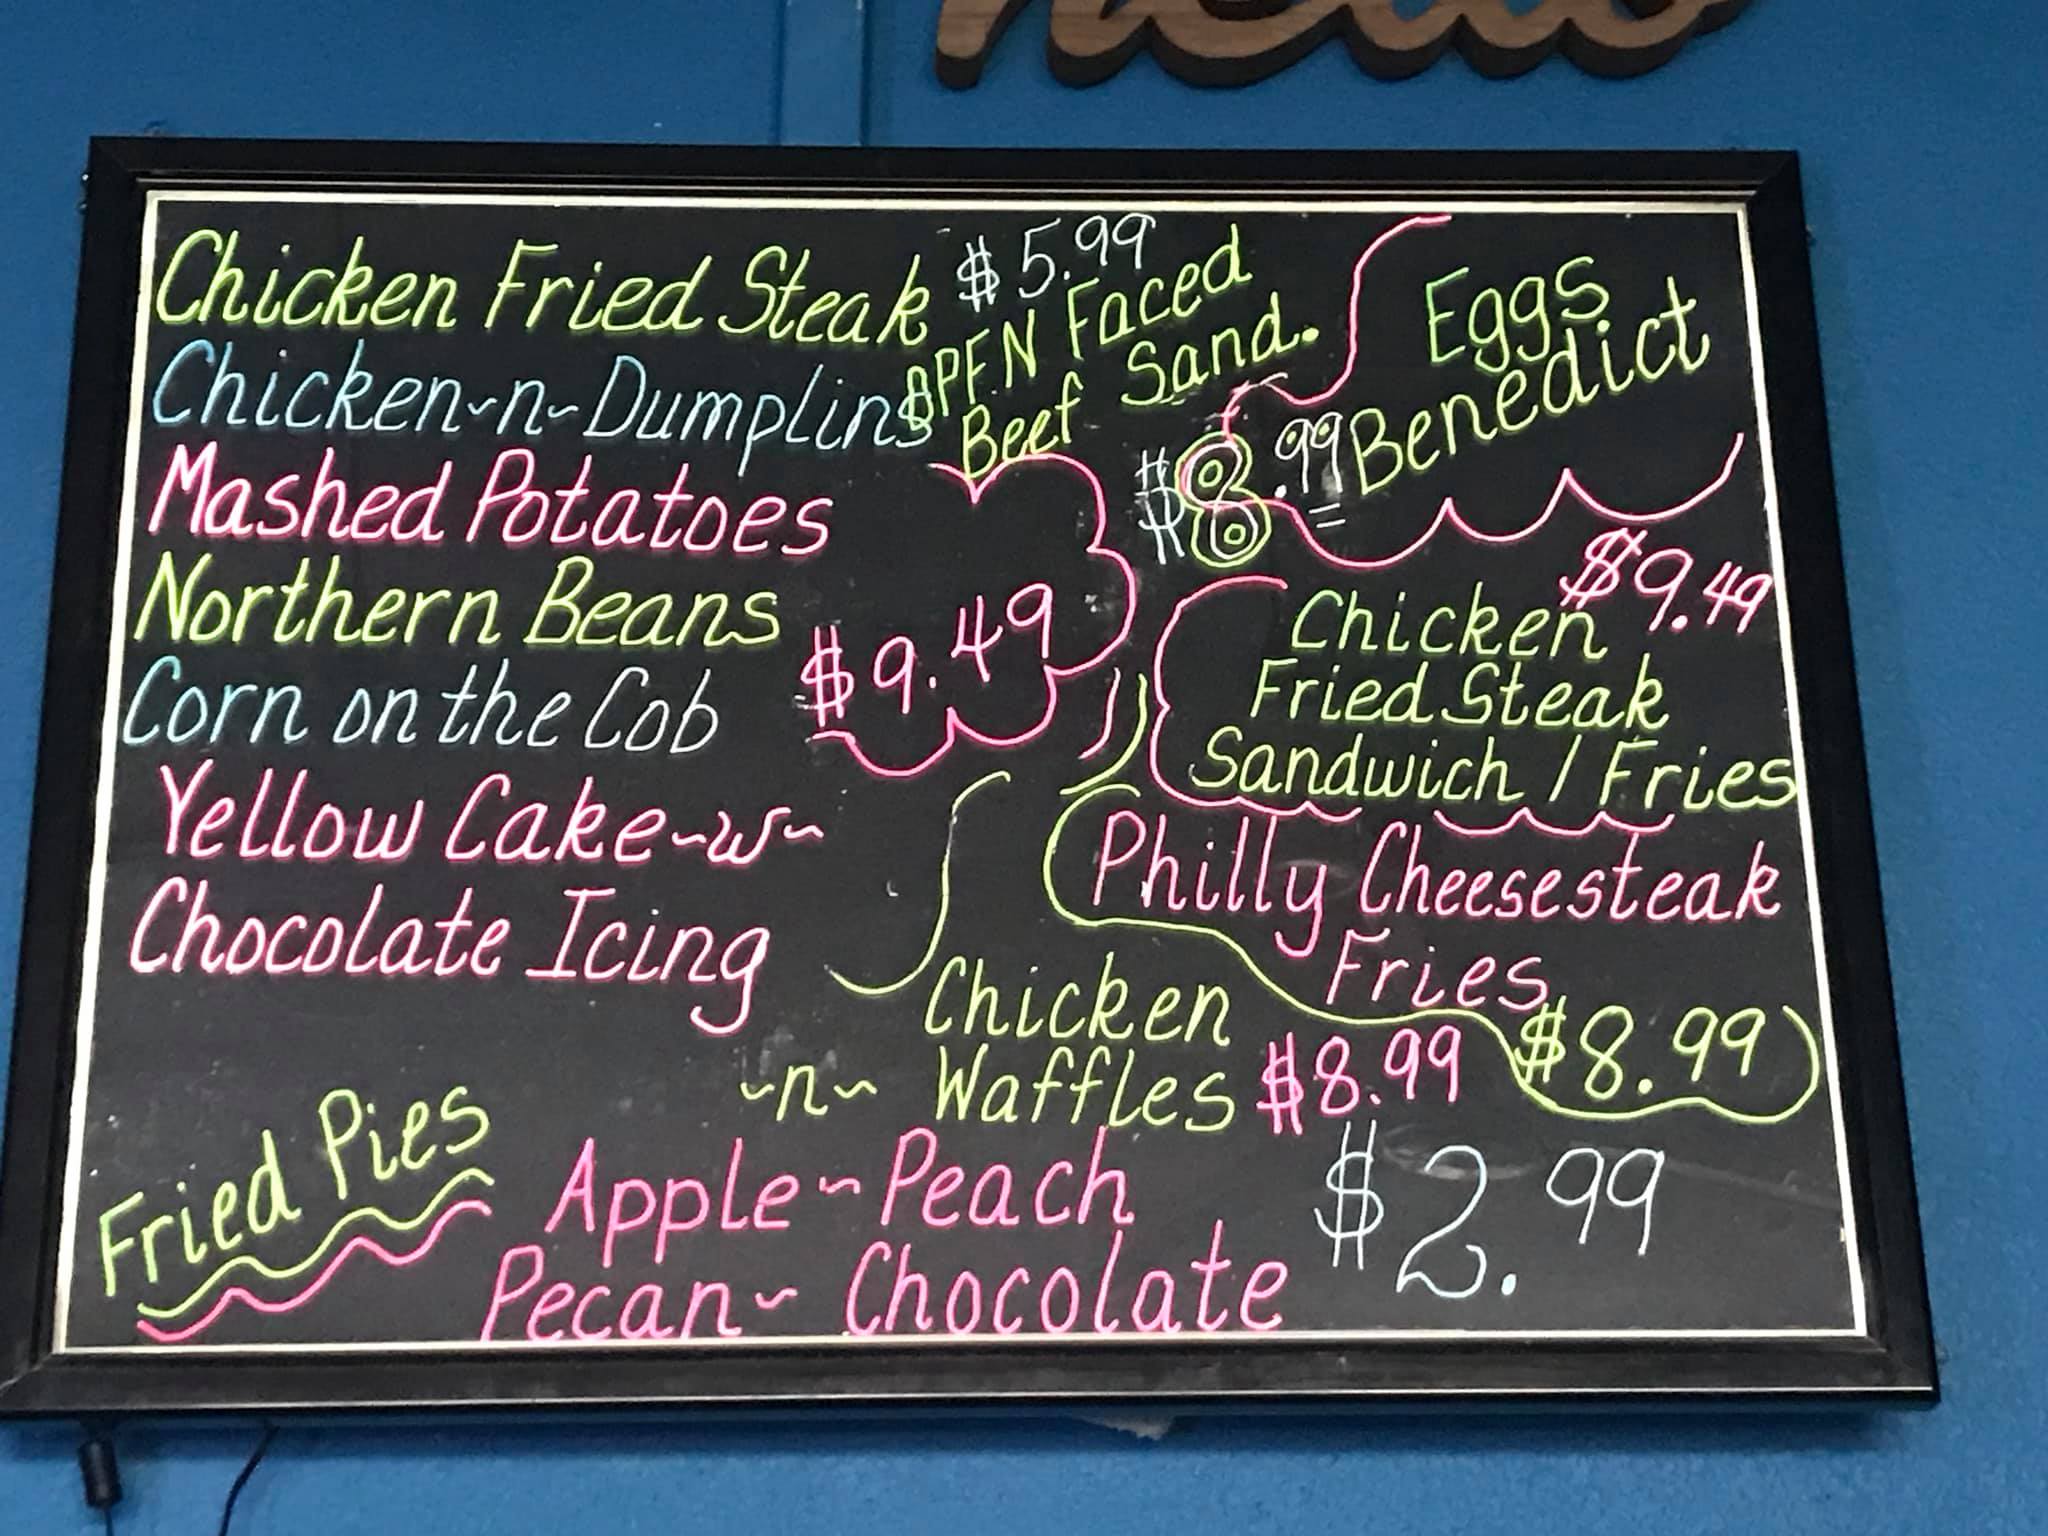 hello
Chicken Fried Steak
Chicken~n~Dumplins
Mashed Potatoes
Northern Beans
Corn on the Cob
Yellow Cake~w~
Chocolate Icing
$9.49
$5.99
OPEN Faced
Beef Sand.
Eggs
Benedict
$8.99
$9.49
Chicken
Fried Steak
Sandwich / Fries
Philly Cheesesteak
Fries
$8.99
Chicken
~n~ Waffles $8.99
Fried Pies
Apple~Peach
Pecan~Chocolate
$2.99